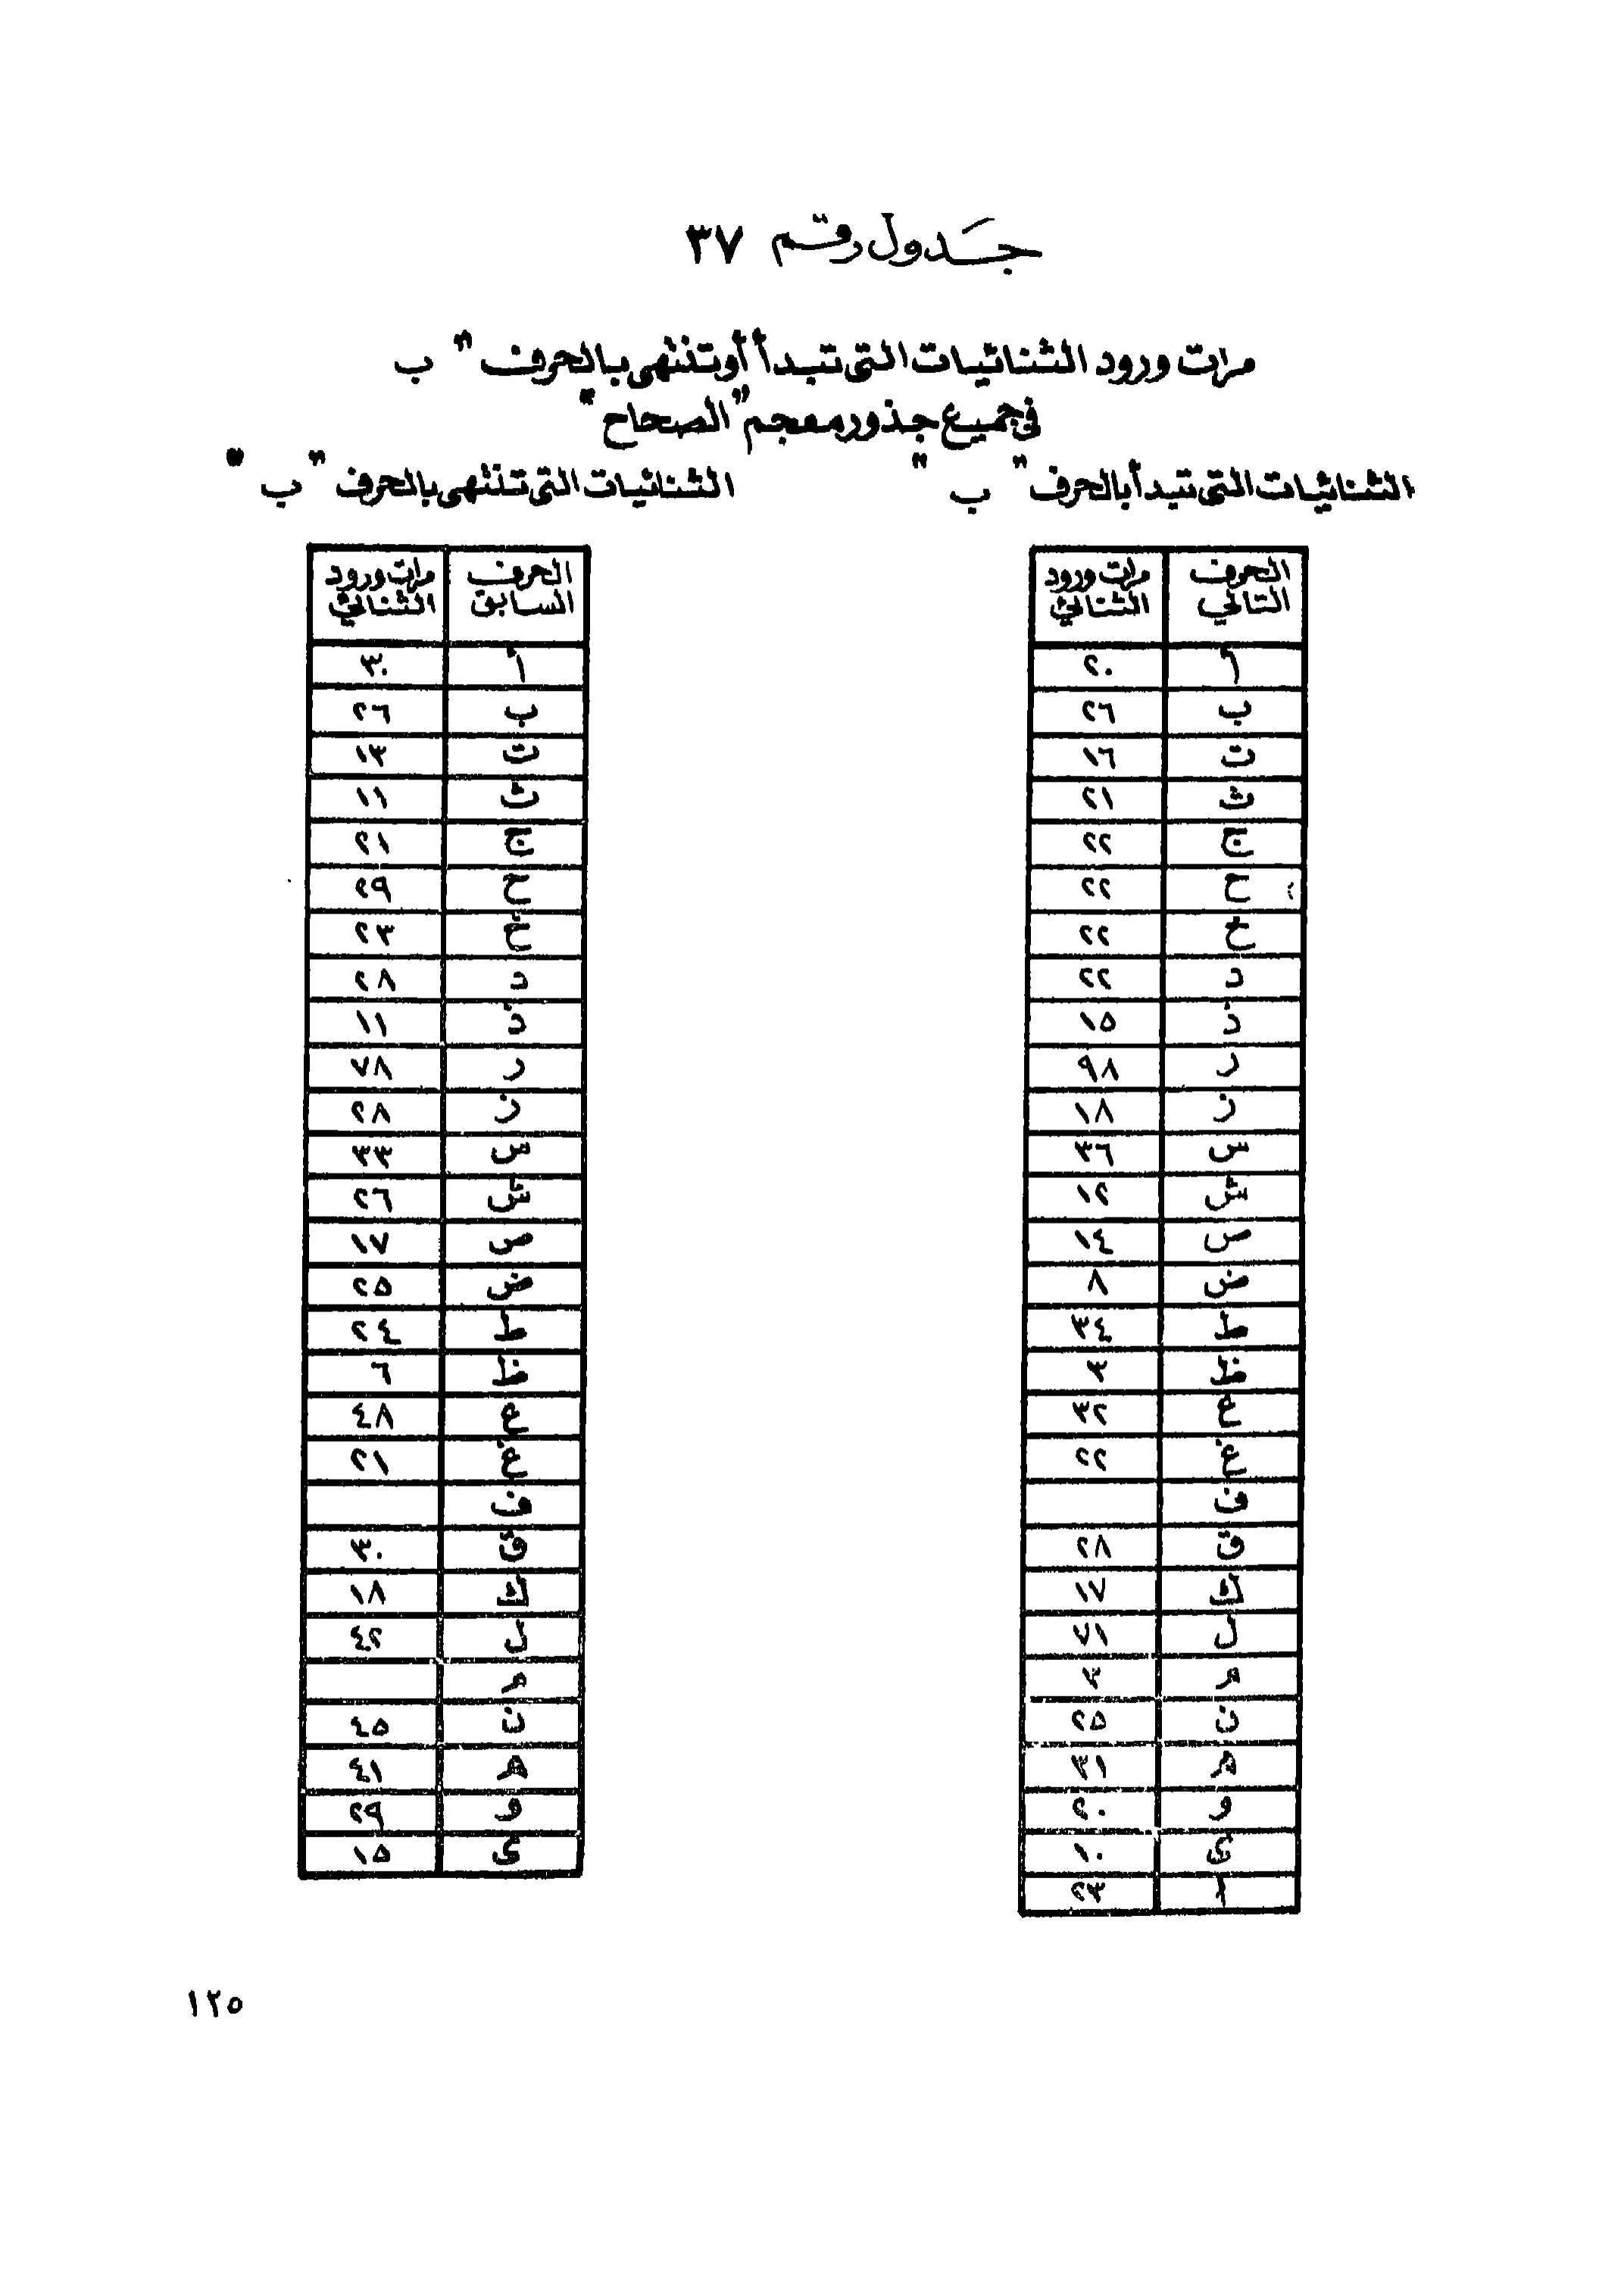 جدول رقم ٣٧
مرات ورود الثنائيات التى تبدأ أو تنتهى بالحرف " ب
فى جميع جذور معجم "الصحاح"
الثنائيات التى تبدأ بالحرف " ب "
الحرف التالي | مرات ورود الثنائي
أ | ٢٠
ب | ٢٦
ت | ١٦
ث | ٢١
ج | ٢٢
ح | ٢٢
خ | ٢٢
د | ٢٢
ذ | ١٥
ر | ٩٨
ز | ١٨
س | ٣٦
ش | ١٢
ص | ١٤
ض | ٨
ط | ٣٤
ظ | ٣
ع | ٣٢
غ | ٢٢
ف |
ق | ٢٨
ك | ١٧
ل | ٧١
م | ٣
ن | ٢٥
ه | ٣١
و | ٢٠
ى | ١٠
ا | ٢٣
الثنائيات التى تنتهى بالحرف " ب "
الحرف السابق | مرات ورود الثنائي
أ | ٣٠
ب | ٢٦
ت | ١٣
ث | ١١
ج | ٢١
ح | ٢٩
خ | ٢٣
د | ٢٨
ذ | ١١
ر | ٧٨
ز | ٢٨
س | ٣٣
ش | ٢٦
ص | ١٧
ض | ٢٥
ط | ٢٤
ظ | ٦
ع | ٤٨
غ | ٢١
ف |
ق | ٣٠
ك | ١٨
ل | ٤٢
م |
ن | ٤٥
ه | ٤١
و | ٢٩
ى | ١٥
١٢٥